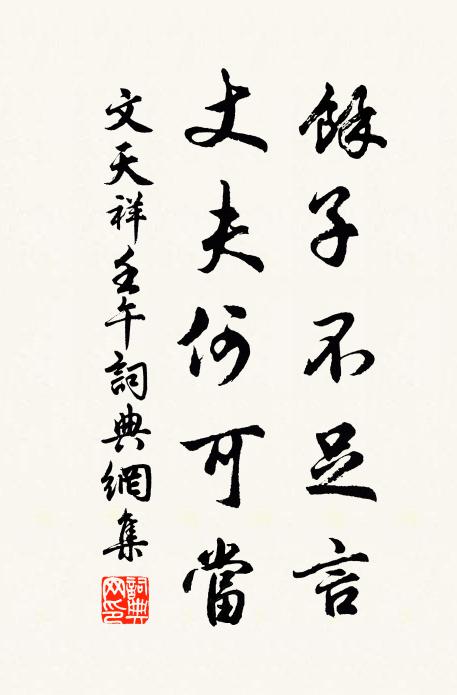 餘子不足言
丈夫何可當
文天祥壬午詞典網集
詞典網印